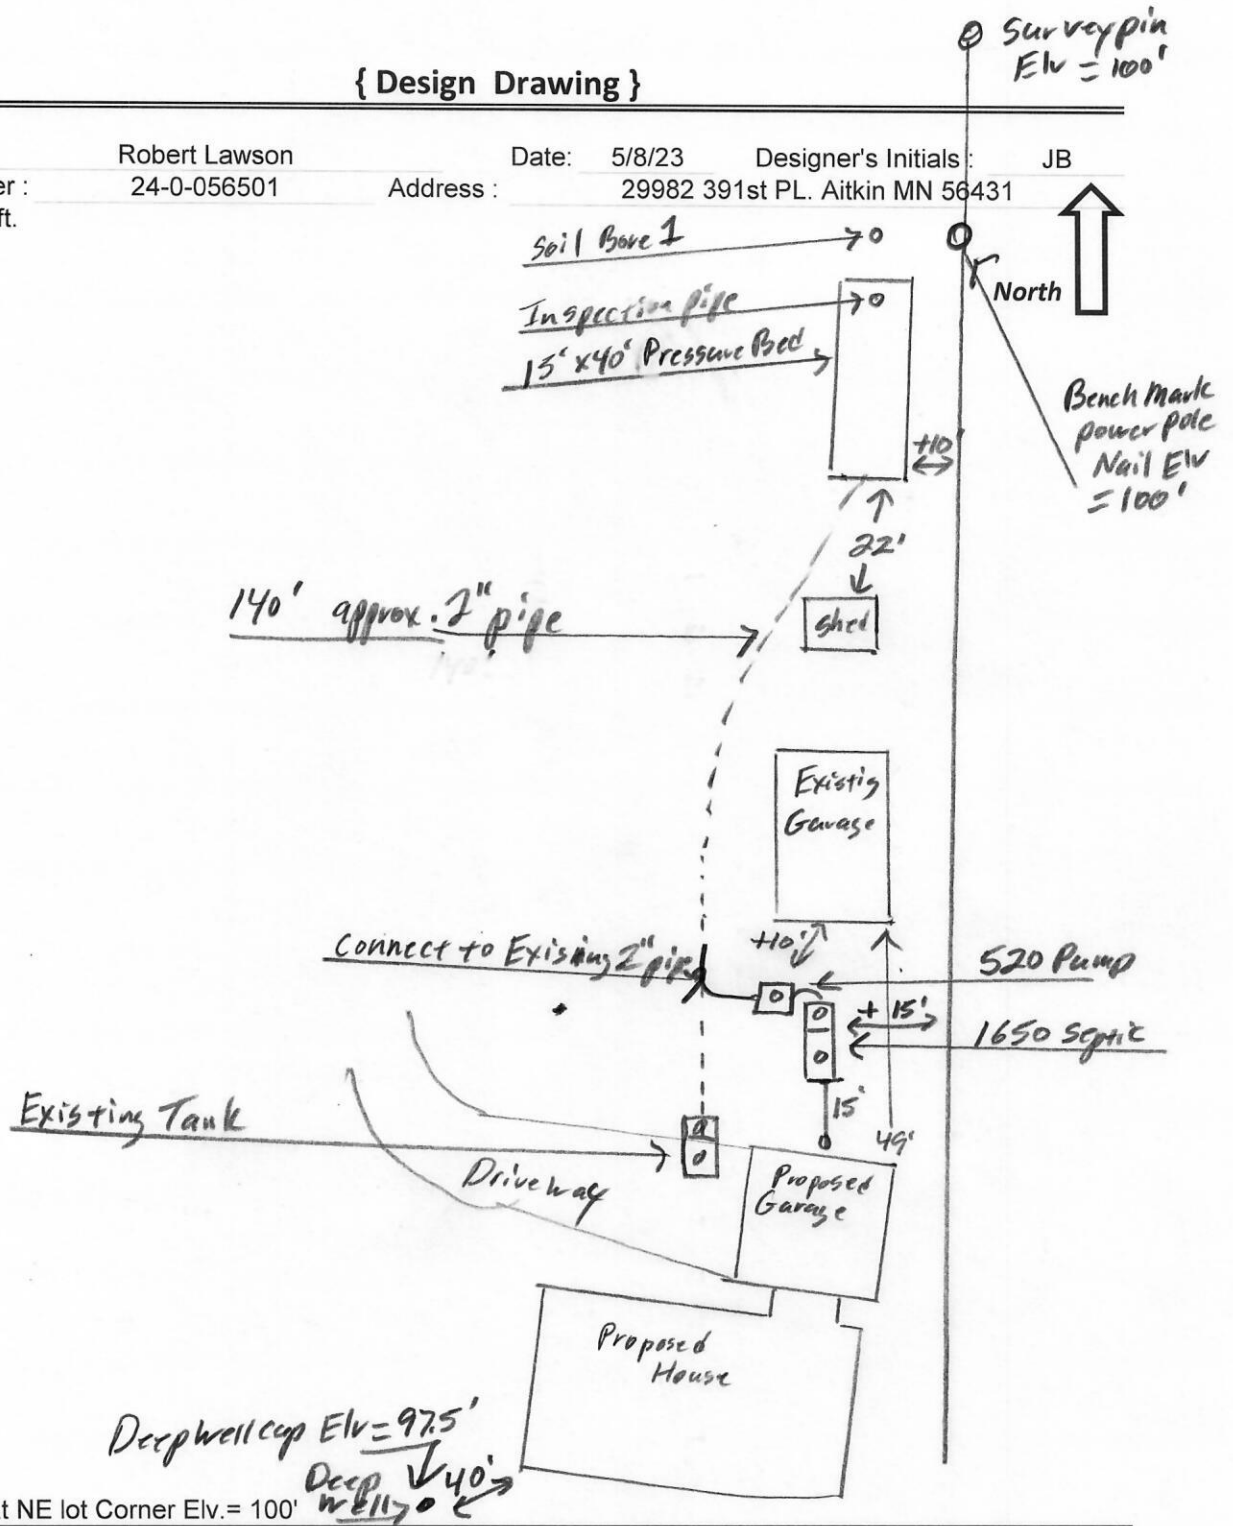 Surveypin
Elv = 100'
{ Design Drawing }
Robert Lawson Date: 5/8/23 Designer's Initials : JB
er : 24-0-056501 Address : 29982 391st PL. Aitkin MN 56431
ft.
Soil Bore 1
North
Inspection pipe
15' x 40' Pressure Bed
Bench Mark
power pole
Nail Elv
= 100'
+10
22'
140' approx. 2" pipe
shed
Existig
Garage
Connect to Existing 2" pipe
+10'
520 Pump
+ 15'
1650 Septic
15'
49'
Existing Tank
Driveway
Proposed
Garage
Proposed
House
Deepwell cap Elv = 97.5'
Deep
Well
40'
t NE lot Corner Elv.= 100'